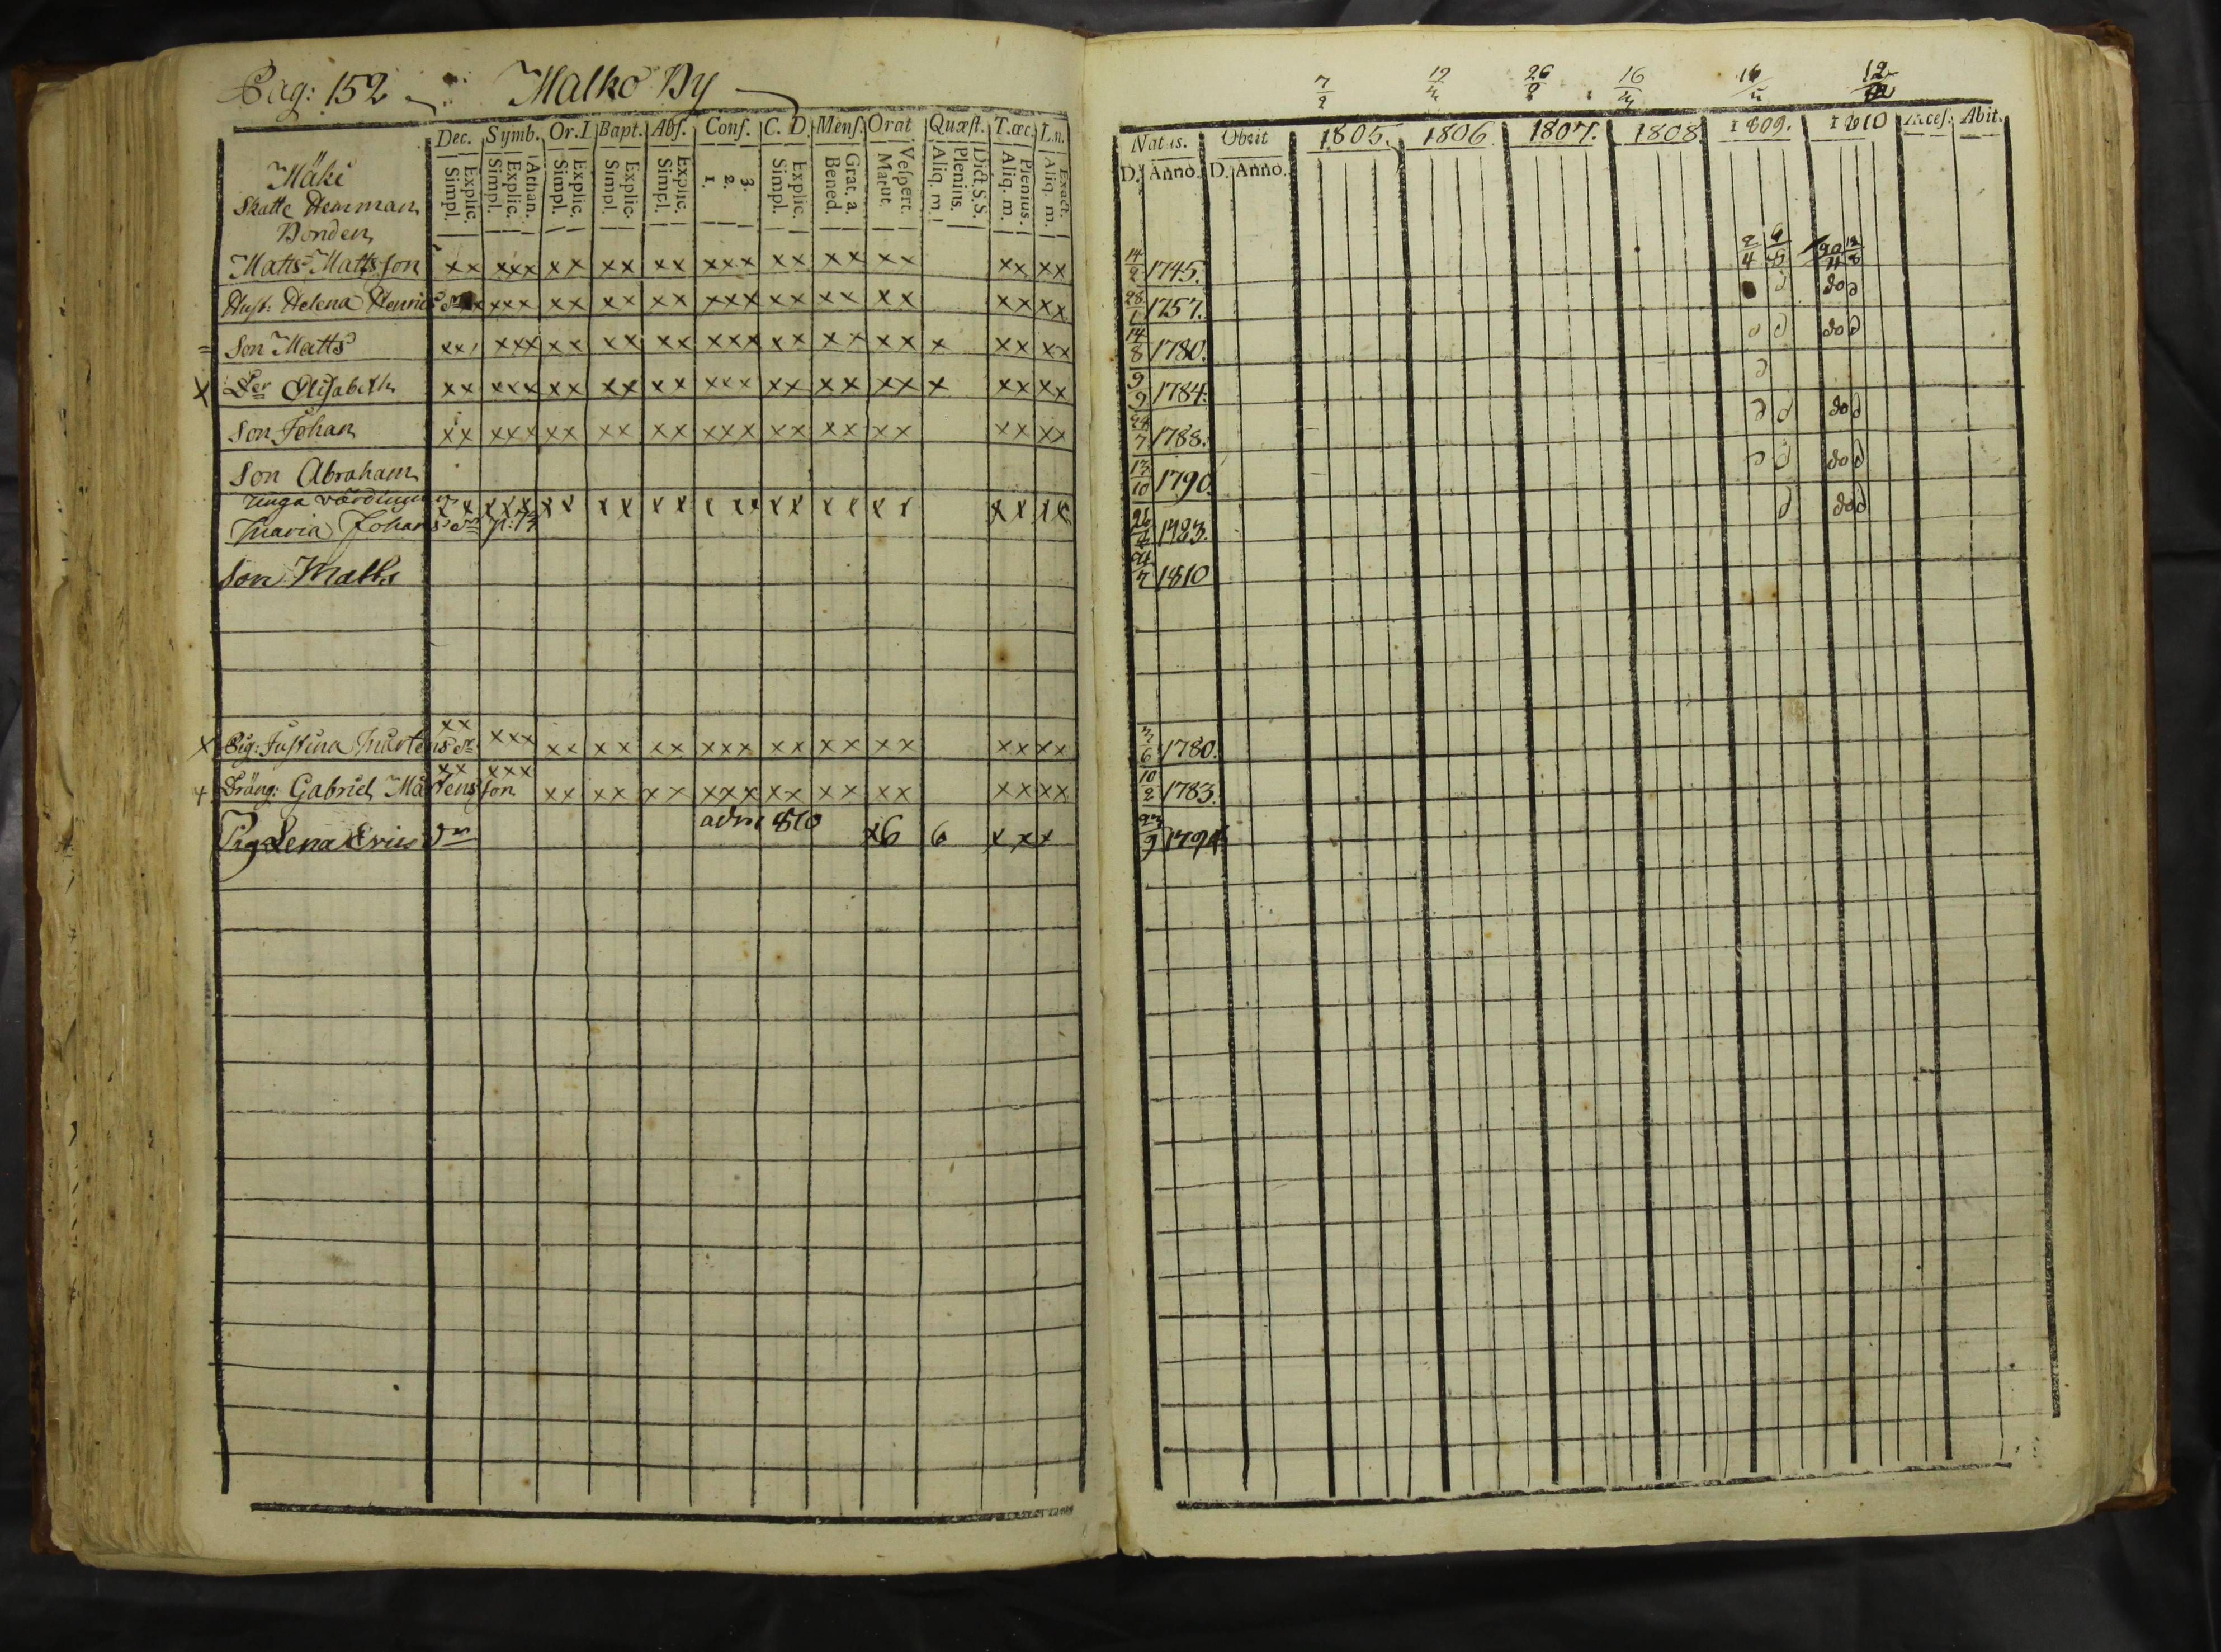 Pag: 152 Malko By
Dec. Symb. Or.D Bapt. Abs. Conf. C. D. Mens. Orat Quæst. T.œc. L.n.
Explic. Simpl. Athan. Explic. Simpl. Explic. Simpl. Explic. Simpl. Explic. Simpl. 3. 2. 1. Explic. Simpl. Grat. a. Bened. Vespert. Matut. Dict. S.S. Plenius. Aliq. m. Plenius. Aliq. m. Exact. Aliq. m.
Mäki
Skatte Hemman
Bonden
Matts Mattsson xx xxx xx xx xx xxx xx xx xx xx xx
Hust: Helena Henrics dr xxx xx xx xx xxx xx xx xx xx xx
= Son Matts xx xxx xx xx xx xxx xx xx xx x xx xx
x Dr Elisabeth xx xxx xx xx xx xxx xx xx xx x xx xx
Son Johan xx xxx xx xx xx xxx xx xx xx xx xx
Son Abraham
unga värdinnan xx xxx xx xx xx xxx xx xx xx xx xx
Maria Johans dr
Son Matts
x Pig: Justina Mårtens dr xx xxx xx xx xx xxx xx xx xx xx xx
+ Dräng: Gabriel Mårtensson xx xxx xx xx xx xxx xx xx xx xx xx
Pig Lena Erics dr adm 810 x6 6 x xx
7/2 12/4 26/2 16/4 16/5
Natus. Obiit 1805. 1806 1807. 1808 1809. 1810 Acces. Abit.
D. Anno. D. Anno.
14/2 1745. 2/4
28/1 1757. do
14/8 1780. do
9/9 1784.
24/7 1788. do
13/10 1790. do
1783. do
1810
6 1780.
10/2 1783.
9